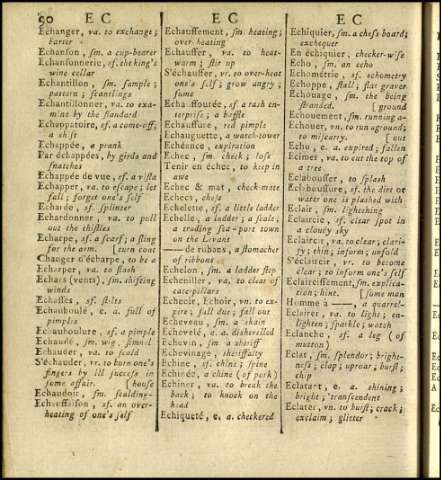 90 E C E C E C
Echanger, va. to exchange;
barter
Echanson, sm. a cup-bearer
Echansonnerie, sf. the king's
wine cellar
Echantillon, sm. sample;
pattern; scantlings
Echantillonner, va. to exa-
mine by the standard
Echappatoire, sf. a come-off,
a shift
Echappée, a prank
Par échappées, by girds and
snatches
Echappée de vue, sf. a viste
Echapper, va. to escape; let
fall; forget one's self
Echarde, sf. splinter
Echardonner, va. to pull
out the thistles
Echarpe, sf. a scarf; a sling
for the arm. [turn coat
Changer d'écharpe, to be a
Echarper, va. to slash
Echars (vents). sm. shifting
winds
Echasses, sf. stilts
Echauboulé, e. a. full of
pimples
Echauboulure, sf. a pimple
Echaudé, sm. wig, simnel
Echauder, va. to scald
S'échauder, vr. to burn one's
fingers by ill success in
some affair. [house
Echaudoir, sm. scalding-
Echauffaison, sf. an over-
heating of one's self
Echauffement, sm. heating;
over heating
Echauffer, va. to heat-
warm; stir up
S'échauffer, vr. to over-heat
one's self; grow angry;
fume
Echauffourée, sf. a rash en-
terprise; a baffle
Echauffure, red pimple
Echauguette, a watch-tower
Echéance, expiration
Echec, sm. check; lose
Tenir en échec, to keep in
awe
Echec & mat, check-mate
Echecs, chess
Echelette, sf. a little ladder
Echelle, a ladder; a scale;
a trading sea-port town
on the Levant
—— de rubans, a stomacher
of ribbons
Echelon, sm. a ladder step
Echeniller, va. to clear of
caterpillars
Echecir, Echoir, vn. to ex-
pire; fall due; fall out
Echeveau, sm. a skain
Echevelé, e. a. dishevelled
Echevin, sm. a sheriff
Echevinage, sheriffalty
Echine, sf. chine; spine
Echinée, a chine (of pork)
Echiner, va. to break the
back; to knock on the
head
Echiqueté, e. a. checkered
Echiquier, sm. a chess board;
exchequer
En échiquier, checker-wise
Echo, sm. an echo
Echométrie, sf. echometry
Echoppe, stall; flat graver
Echouage, sm. the being
stranded. [ground
Echouement, sm. running a-
Echouer, vn. to run aground;
to miscarry. [out
Echu, e. a. expired; fallen
Ecimer, va. to cut the top of
a tree
Eclabousser, to splash
Eclaboussure, sf. the dirt or
water one is plashed with
Eclair, sm. lightening
Eclaircie, sf. clear spot in
a cloudy sky
Eclaircir, va. to clear; clari-
fy; thin; inform; unfold
S'éclaircir, vr. to become
clear; to inform one's self
Eclaircissement, sm. explica-
tion; hint. [some man
Homme à ——, a quarrel-
Eclairer, va. to light; en-
lighten; sparkle; watch
Eclanche, sf. a leg (of
mutton)
Eclat, sm. splendor; bright-
ness; clap; uproar; burst;
chip
Eclatant, e. a. shining;
bright; transcendent
Eclater, vn. to burst; crack;
exclaim; glitter